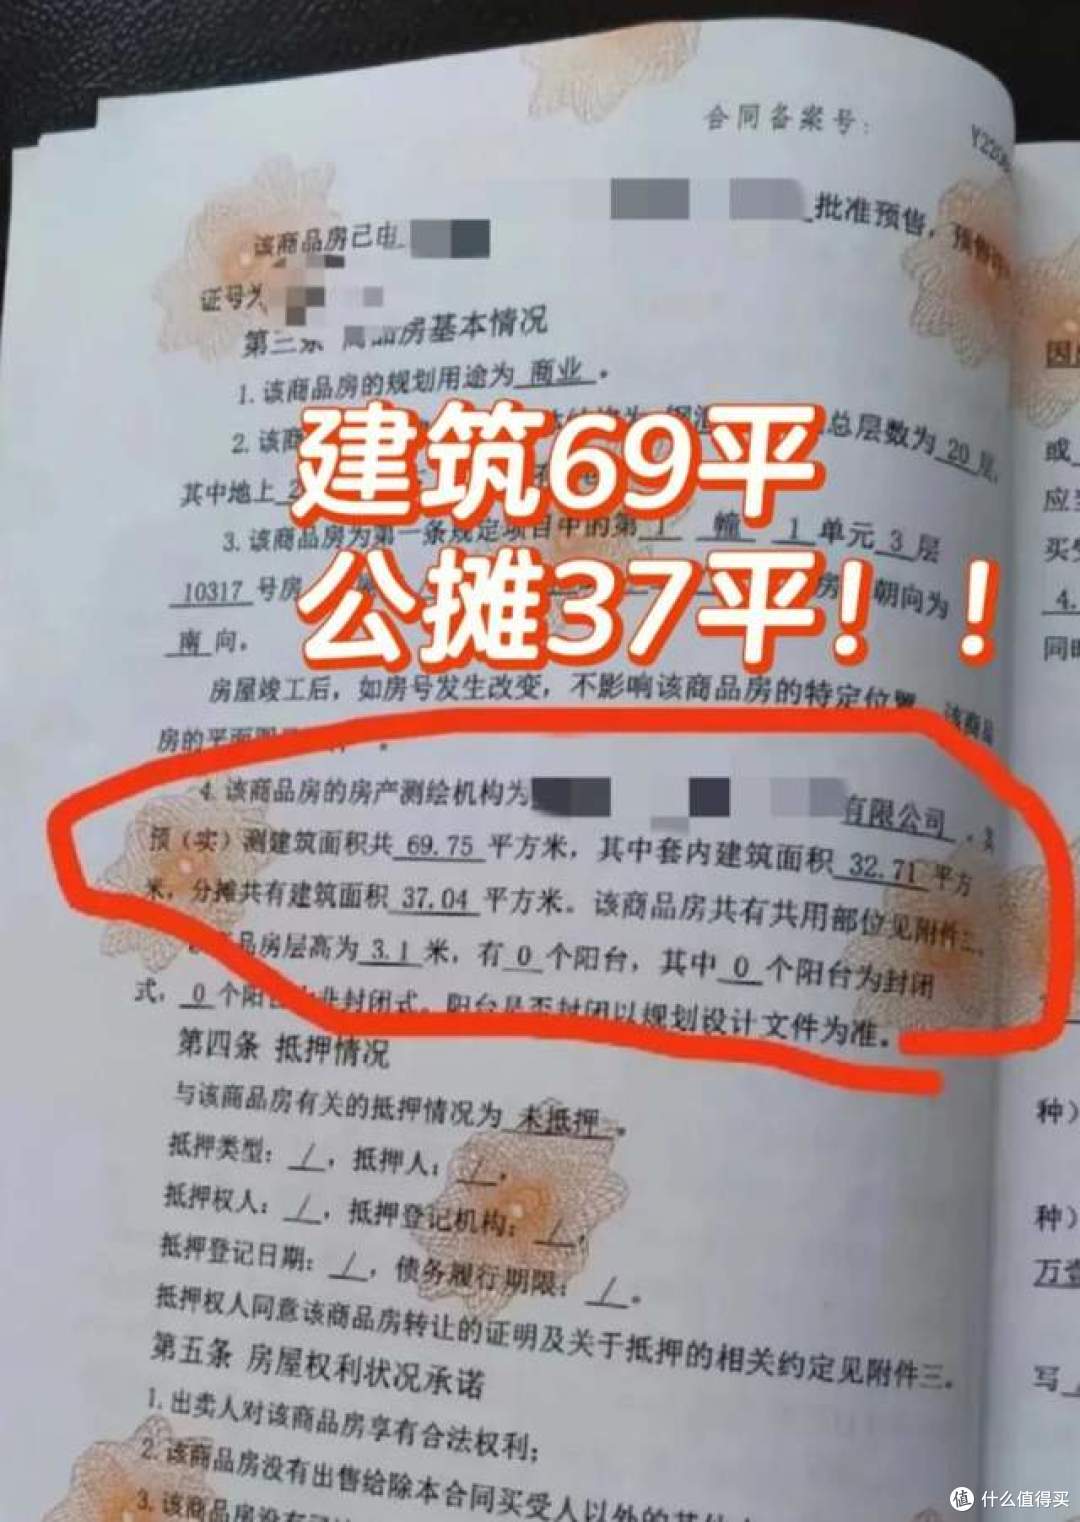 合同备案号：
Y2206
该商品房已由
批准预售，预售许
证号为
第三条 商品房基本情况
1.该商品房的规划用途为 商业 。
2.该商
总层数为 20 层，
其中地上
建筑69平
3.该商品房为第一条规定项目中的第 1 幢 1 单元 3 层
10317 号房
房
朝向为
公摊37平！！
南 向。
房屋竣工后，如房号发生改变，不影响该商品房的特定位置，该商品
房的平面图见
4.该商品房的房产测绘机构为
有限公司，其
预（实）测建筑面积共 69.75 平方米，其中套内建筑面积 32.71 平方
米，分摊共有建筑面积 37.04 平方米。该商品房共有共用部位见附件二。
品房层高为 3.1 米，有 0 个阳台，其中 0 个阳台为封闭
式，0 个阳台为非封闭式。阳台是否封闭以规划设计文件为准。
第四条 抵押情况
与该商品房有关的抵押情况为 未抵押 。
抵押类型：/，抵押人：/，
抵押权人：/，抵押登记机构：/，
抵押登记日期：/，债务履行期限：/。
抵押权人同意该商品房转让的证明及关于抵押的相关约定见附件三。
第五条 房屋权利状况承诺
1.出卖人对该商品房享有合法权利；
2.该商品房没有出售给除本合同买受人以外的其他
3.该商品房没有
或
应当
买受
4.
同时
种）
种）
万壹
写
值 什么值得买